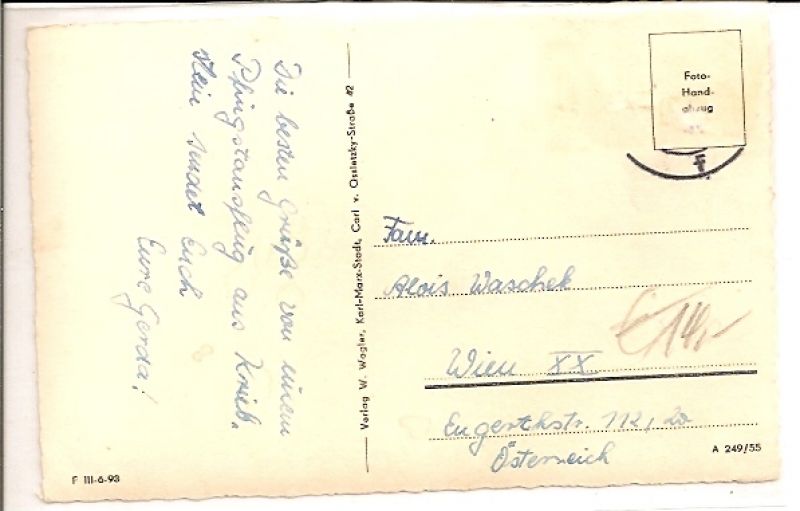 Die besten Grüße von einem
Pfingstausflug aus Krieb-
stein sendet Euch
Eure Gerda!
Verlag W. Wagler, Karl-Marx-Stadt, Carl v. Ossietzky-Straße 42
Foto-
Hand-
abzug
F
Fam.
Alois Waschek
14,-
Wien XX
Engerthstr. 112, 20
Österreich
A 249/55
F III-6-93